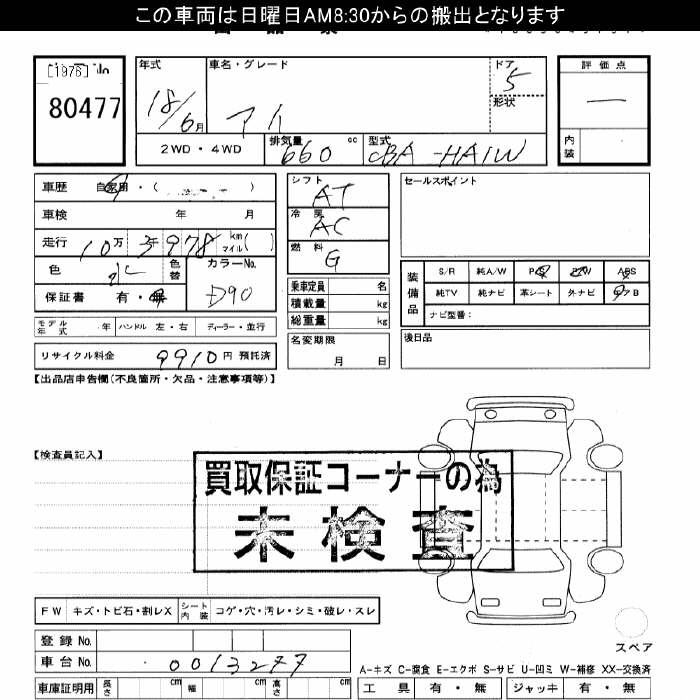 この車両は日曜日AM8:30からの搬出となります
[1976] No
80477
年式 18/6月
車名・グレード アイ
ドア 5
形状
評価点 —
内装
2WD・4WD
排気量 660 cc
型式 CBA-HA1W
車歴 自家用・( )
車検 年 月
走行 10万3千978 km マイル( )
色 水 色替
カラーNo. D90
保証書 有・無
モデル年式 年 ハンドル 左・右 ディーラー・並行
リサイクル料金 9910円 預託済
シフト AT
冷房 AC
燃料 G
乗車定員 名
積載量 kg
総重量 kg
名変期限
月 日
セールスポイント
装備品
S/R 純A/W P/S P/W ABS
純TV 純ナビ 革シート 外ナビ エアB
ナビ型番:
後日品
【出品店申告欄(不良箇所・欠品・注意事項等)】
【検査員記入】
買取保証コーナーの為
未検査
FW キズ・トビ石・割レX シート内装 コゲ・穴・汚レ・シミ・破レ・スレ
登録No.
車台No. 0013277
車庫証明用 長さ cm 幅 cm 高さ cm
スペア
A-キズ C-腐食 E-エクボ S-サビ U-凹ミ W-補修 XX-交換済
工具 有・無 ジャッキ 有・無